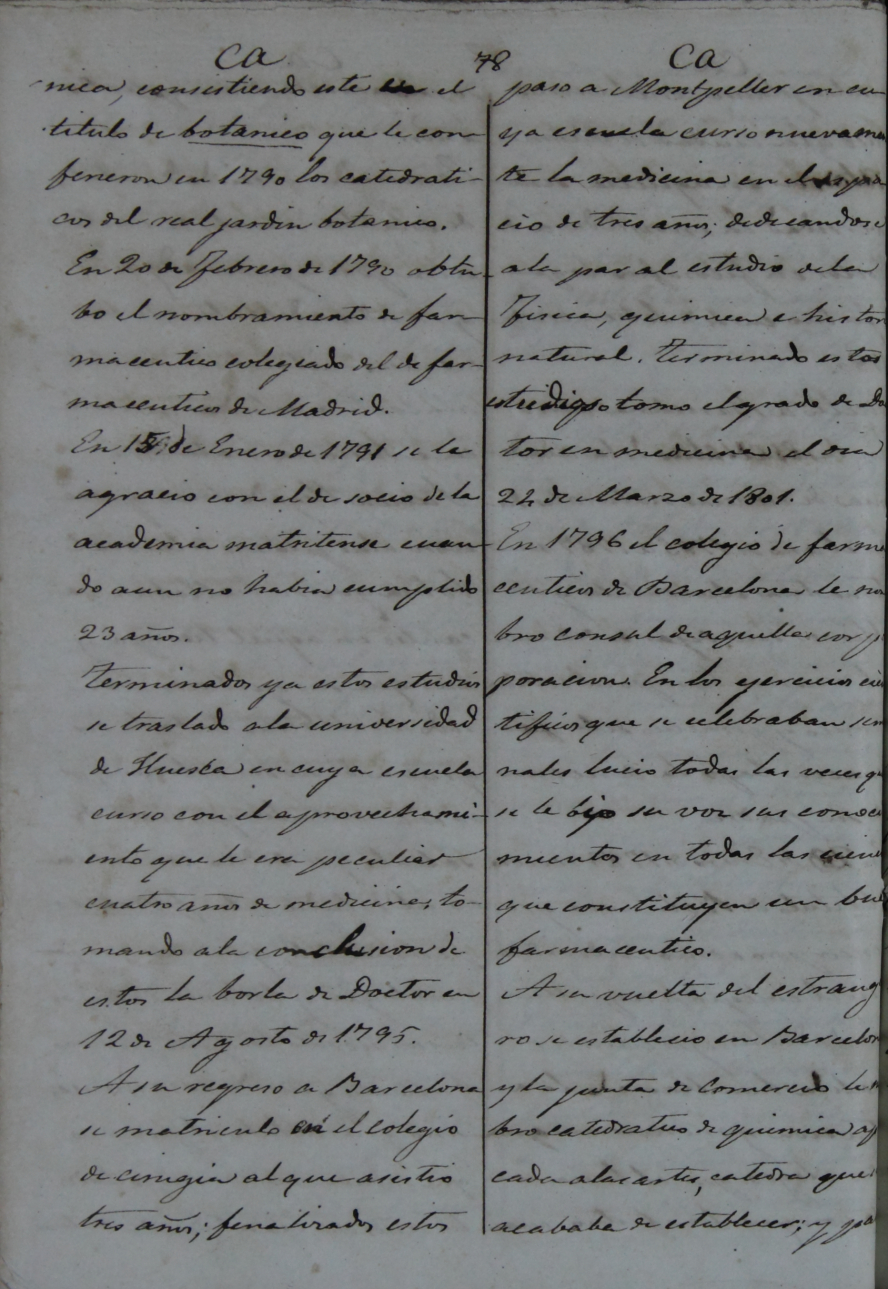 Ca
78
Ca
nica, consistiendo este en el
titulo de botanico que le con-
firieron en 1790 los catedrati-
cos del real jardin botanico.
En 20 de Febrero de 1790 obtu-
bo el nombramiento de far-
maceutico colegiado del de far-
maceuticos de Madrid.
En 15 de Enero de 1791 se le
agracio con el de socio de la
academia matritense cuan-
do aun no habia cumplido
23 años.
Terminados ya estos estudios
se traslado a la universidad
de Huesca en cuya escuela
curso con el aprovechami-
ento que le era peculiar
cuatro años de medicina, to-
mando a la conclusion de
estos la borla de Doctor en
12 de Agosto de 1795.
A su regreso a Barcelona
se matriculo en el colegio
de cirugia al que asistio
tres años; finalizados estos
paso a Montpeller en cu
ya escuela curso nuevamen
te la medicina en el espa
cio de tres años; dedicandose
a la par al estudio de la
Fisica, quimica e histor
natural. Terminado estos
estudios tomo el grado de Do
tor en medicina el dia
22 de Marzo de 1801.
En 1796 el colegio de farma
ceuticos de Barcelona le no
bro consul de aquella cor
poracion. En los ejercicios cien
tificos que se celebraban sem
nales lucio todas las veces q
se le oyo su voz sus conoci
mientos en todas las cienc
que constituyen un bue
farmaceutico.
A su vuelta del estrang
ro se establecio en Barcelon
y la junta de Comercio le
bro catedratico de quimica ap
cada a las artes, catedra que
acababa de establecer; y